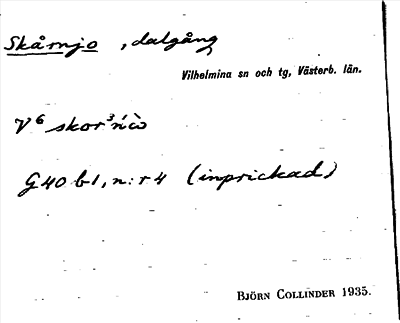 Skårnjo, dalgång
Vilhelmina sn och tg, Västerb. län.
V⁶ skor³ńὼ
G40 b1, n:r 4 (inprickad)
BJÖRN COLLINDER 1935.